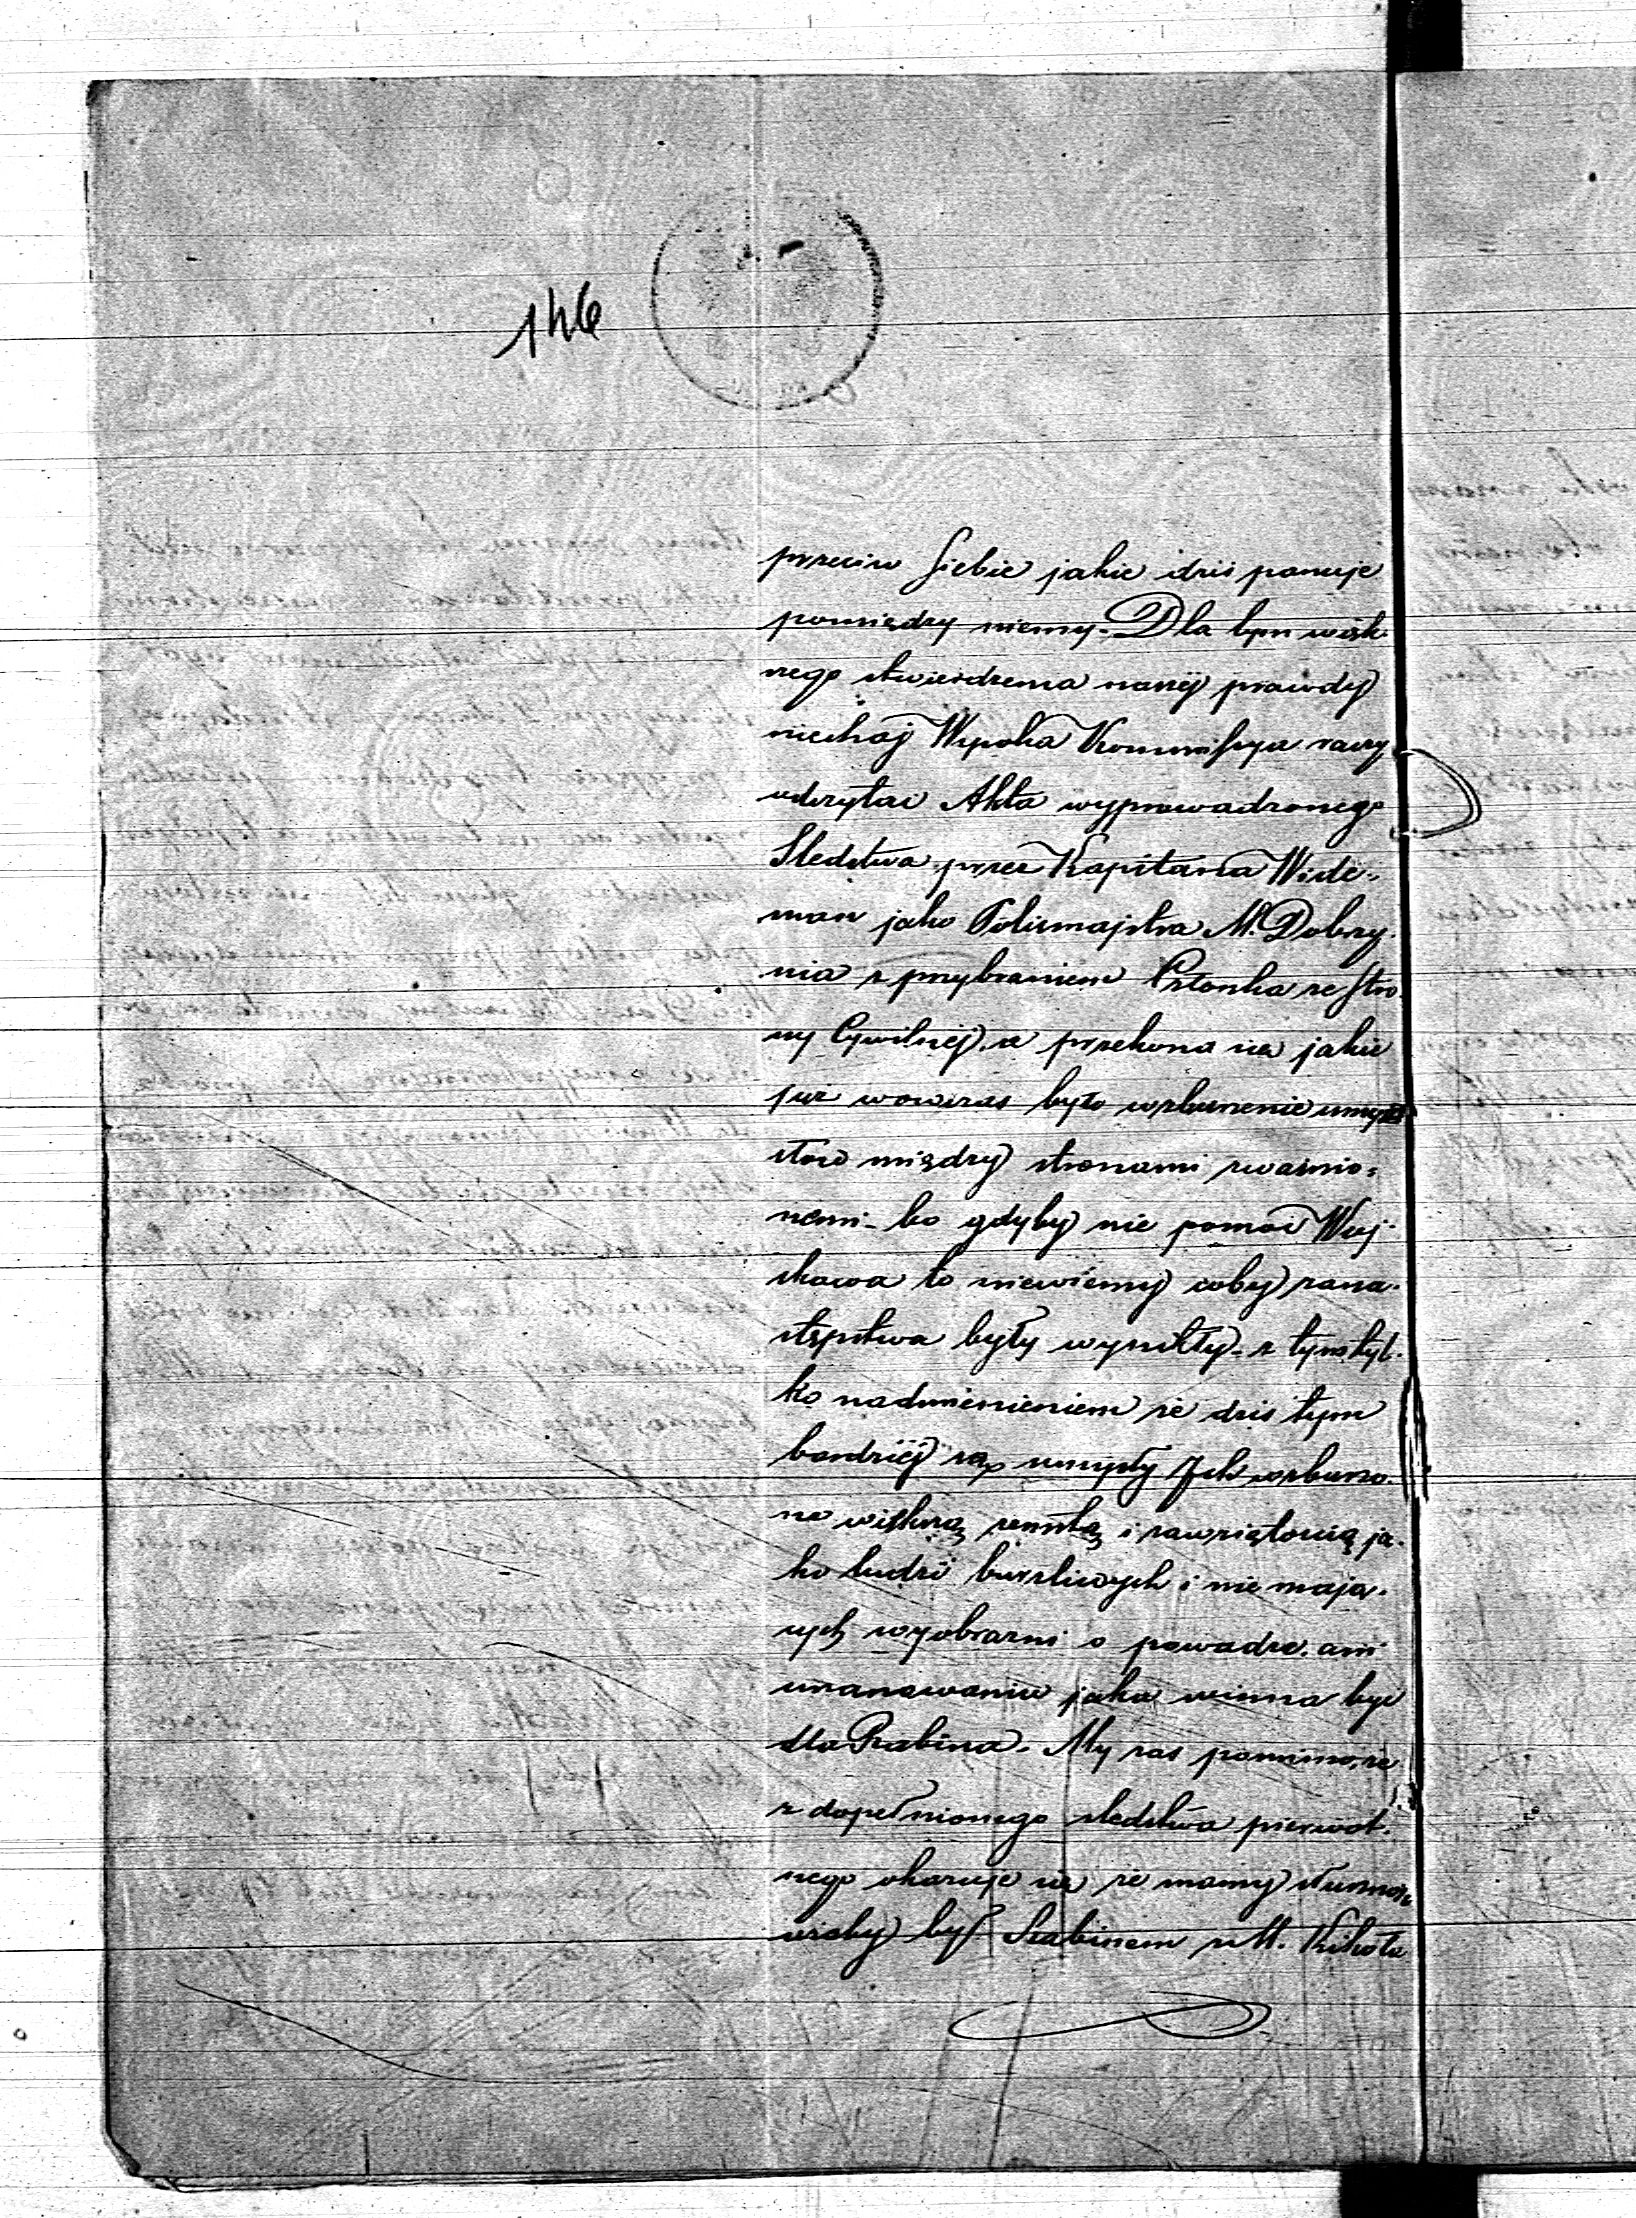 146
przeciw siebie jakie dziś panuje
pomiędzy niemy. Dla tym więk-
szego stwierdzenia naszéj prawdy
niechaj Wysoka Kommissya raczy
odczytać Akta wyprowadzonego
Sledztwa przez Kapitana Wide-
man jako Polismajstra M. Dobrzy-
nia z przybraniem Członka ze stro-
ny Cywilnéj, a przekona się jakie
już wowczas było wzburzenie umy-
słow między stronami zwaśnio-
nemi - bo gdyby nie pomoc Woj-
skowa to niewiemy coby za na-
stępstwa były wynikły - z tym tyl-
ko nadmienieniem że dziś tym
bardziéj są umysły Ich wzburzo-
ne większą zemstą i zawziętością ja-
ko ludzi burzliwych i nie mają-
cych wyobrazni o powadze, ani
uszanowaniu jakie winna być
dla Rabina. My zas pomimo, że
z dopełnionego sledztwa pierwot-
nego okazuje się że mamy słuszność
ażeby był Rabinem z M. Kikoła